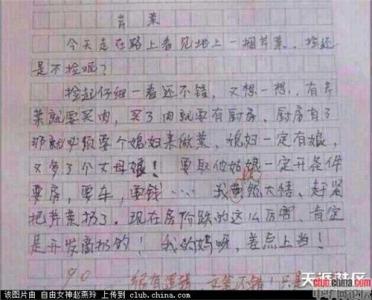 芹菜
今天走在路上看见地上一捆芹菜、捡还
是不捡呢?
捡起仔细一看还不错,又想一想,有芹
菜就要买肉,买了肉就要有厨房、厨房有了
那就必须要个媳妇来做菜、媳妇一定有娘,
又多了个丈母娘!要取他姑娘一定开条件
要房,要车,要钱……我恍然大悟、赶紧
把芹菜扔了。现在房价跌的这么厉害、肯定
是开发商扔的!我的妈呀,差点上当!
90
天涯社区
club.china.com
该图片由 自由女神赵燕玲 上传到 club.china.com